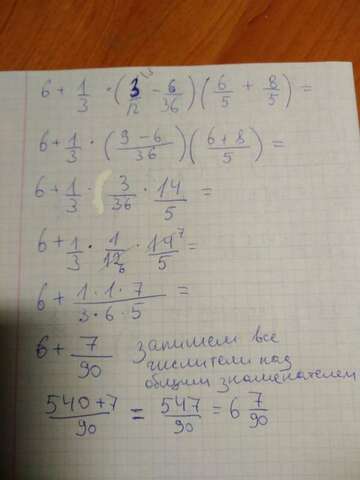 6 + 1/3 · (3/12 - 6/36)(6/5 + 8/5) =
6 + 1/3 · ((9 - 6)/36)((6 + 8)/5) =
6 + 1/3 · (3/36 · 14/5 =
6 + 1/3 · 1/12 6 · 14/5 7 =
6 + (1 · 1 · 7)/(3 · 6 · 5) =
6 + 7/90 запишем все
числители над
общим знаменателем
(540 + 7)/90 = 547/90 = 6 7/90